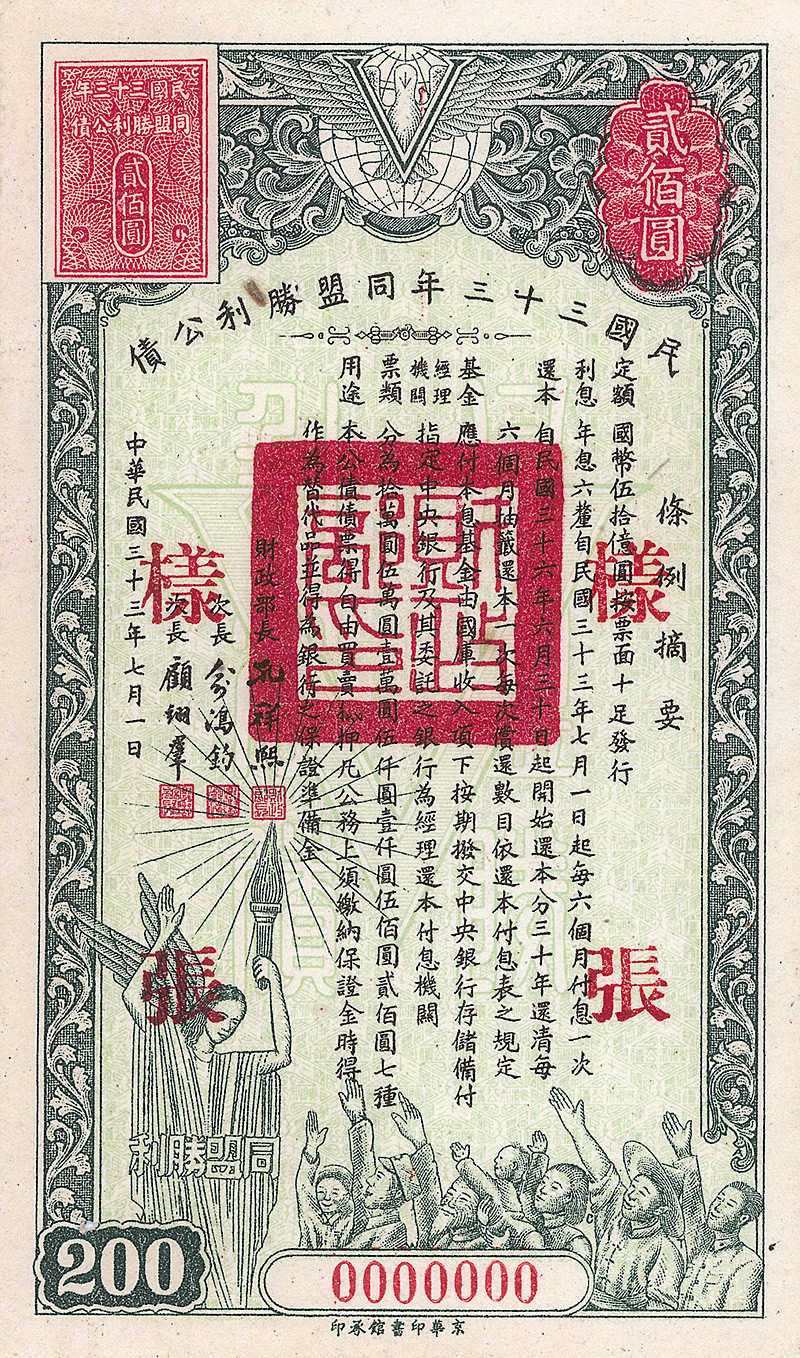 民國三十三年
同盟勝利公債
貳佰圓
V
貳佰圓
民國三十三年同盟勝利公債
條例摘要
定額 國幣伍拾億圓按票面十足發行
利息 年息六釐自民國三十三年七月一日起每六個月付息一次
還本 自民國三十六年六月三十日起開始還本分三十年還清每
六個月抽籤還本一次每次償還數目依還本付息表之規定
基金 應付本息基金由國庫收入項下按期撥交中央銀行存儲備付
經理機關 指定中央銀行及其委託之銀行為經理還本付息機關
票類 分為拾萬圓伍萬圓壹萬圓伍仟圓壹仟圓伍佰圓貳佰圓七種
用途 本公債債票得自由買賣抵押凡公務上須繳納保證金時得
作為替代品並得為銀行之保證準備金
財政部長 孔祥熙
次長 俞鴻鈞
次長 顧翊羣
中華民國三十三年七月一日
樣張
樣張
同盟勝利
200
0000000
京華印書館承印